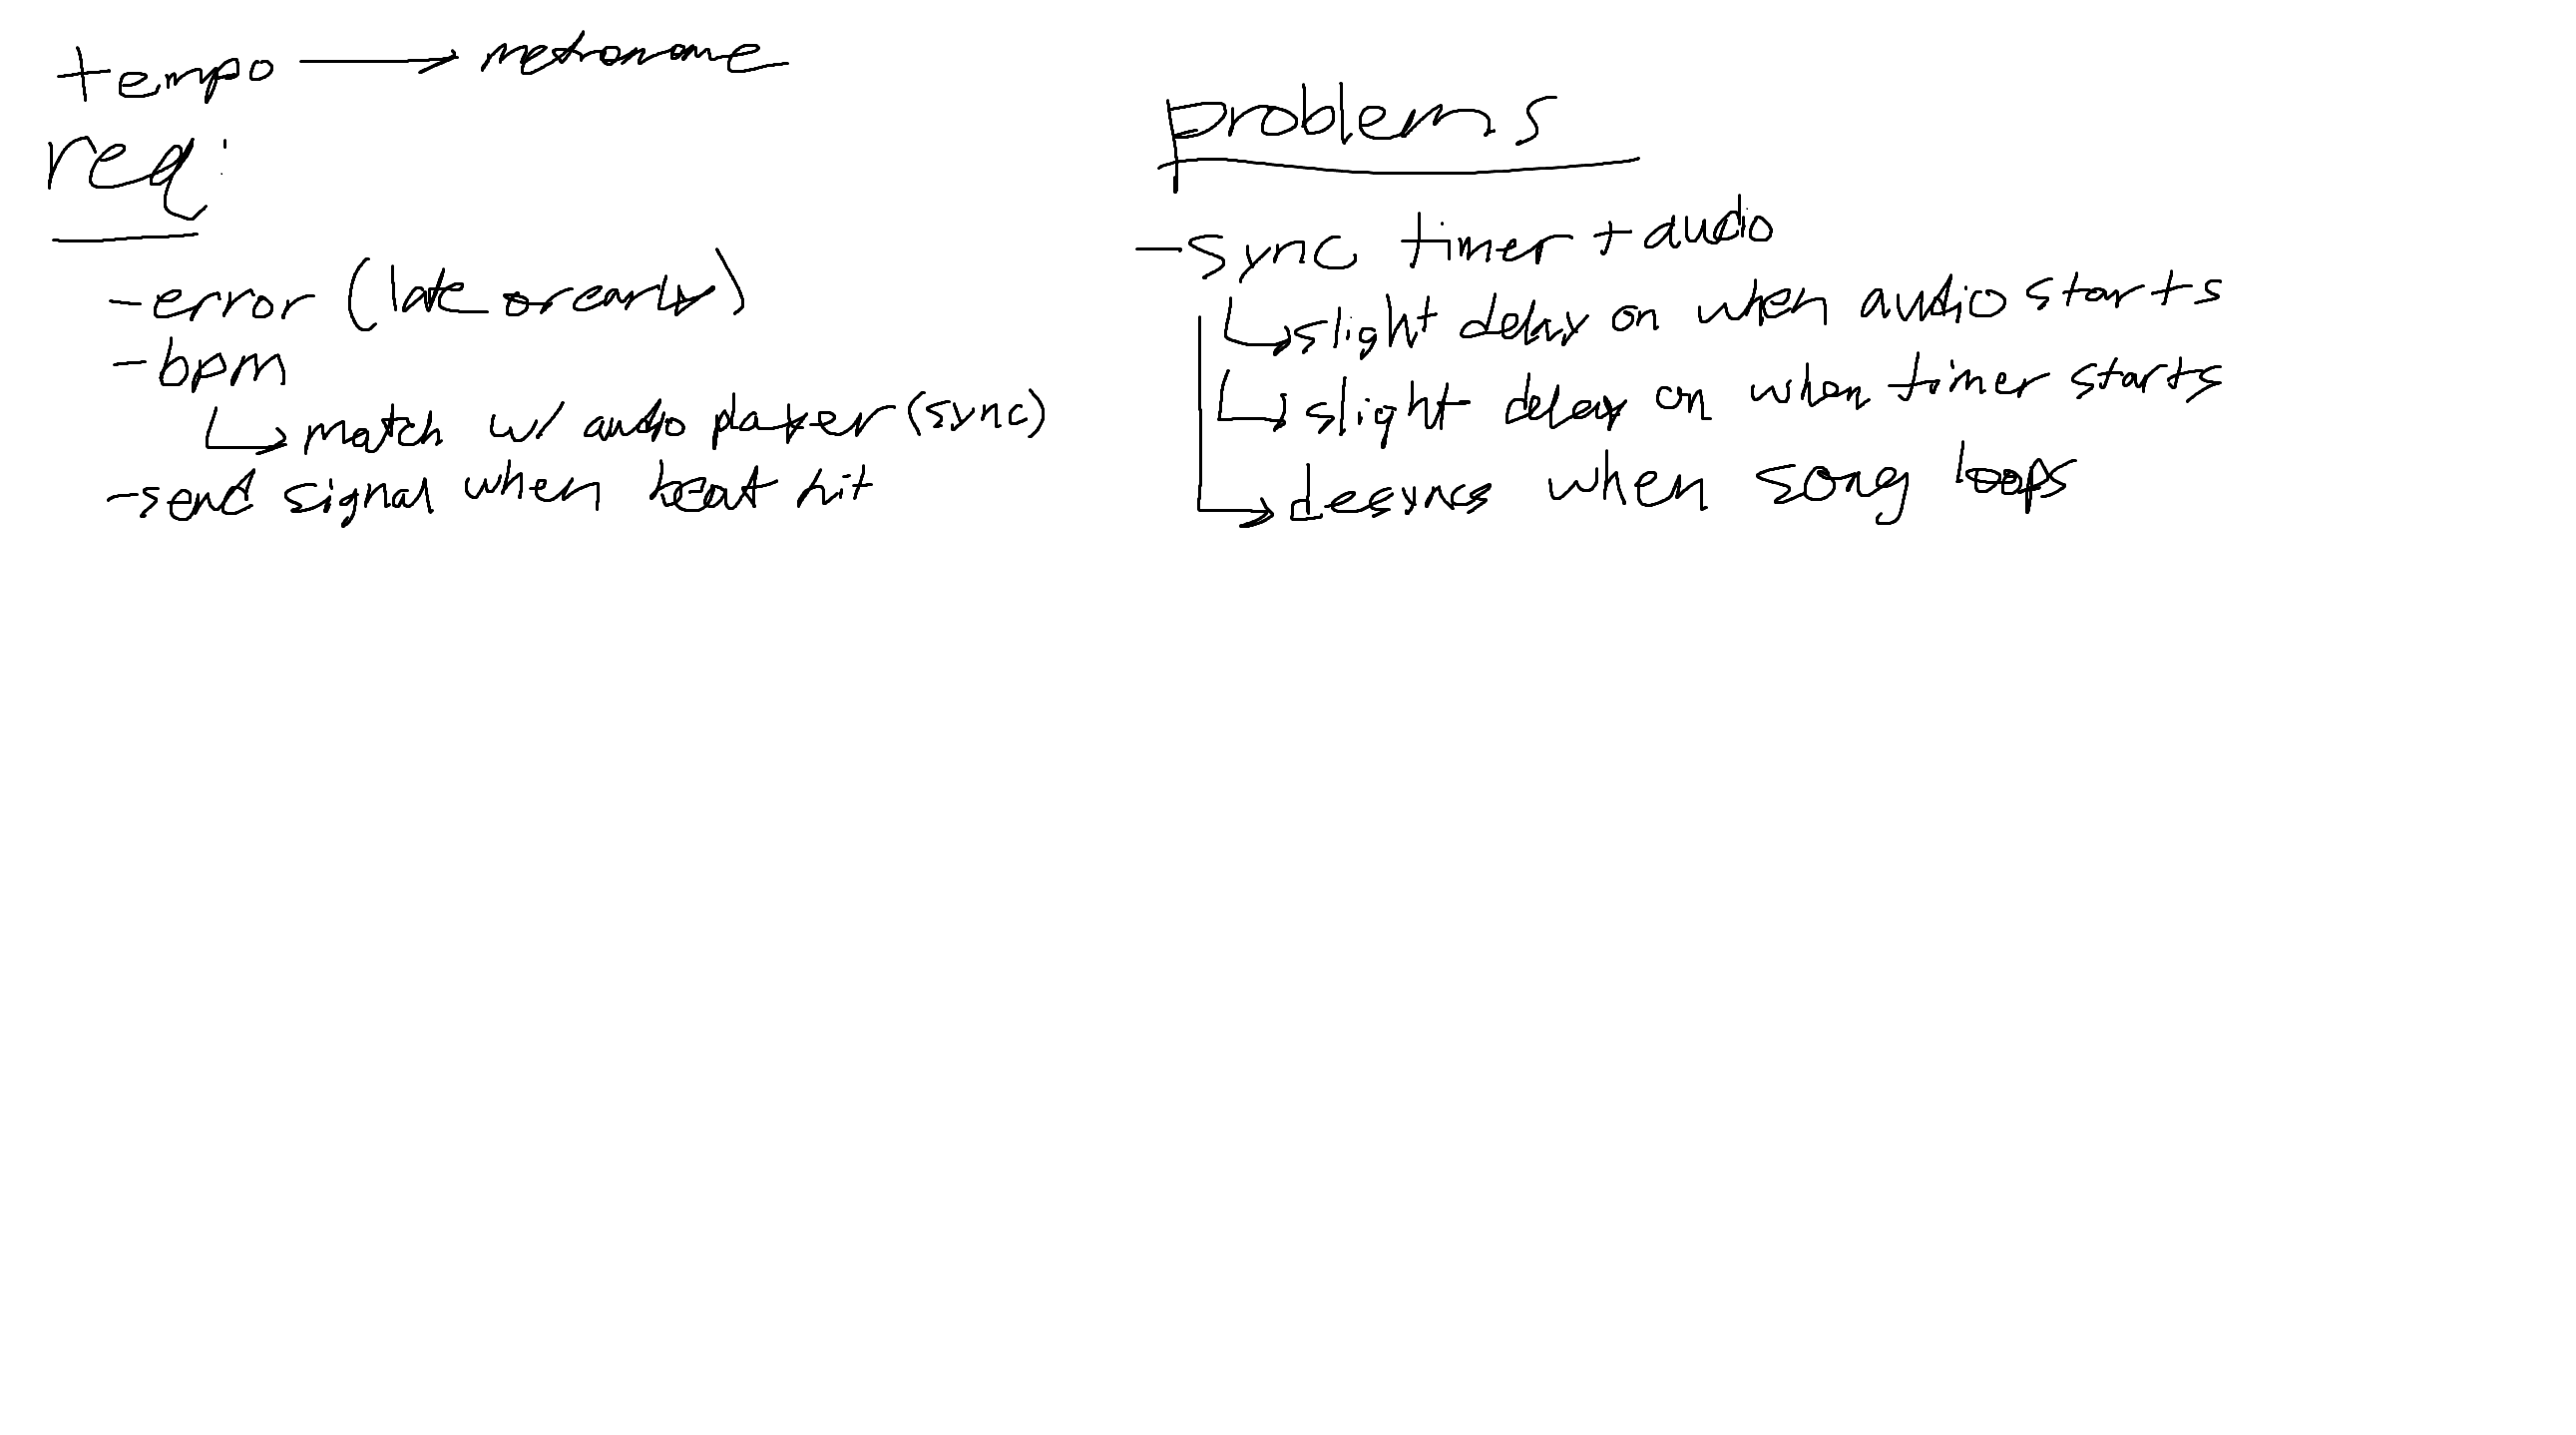 tempo → metronome
req:
- error (late or early)
- bpm
↳ match w/ audio player (sync)
- send signal when beat hit
problems
- sync timer + audio
↳ slight delay on when audio starts
↳ slight delay on when timer starts
↳ desyncs when song loops